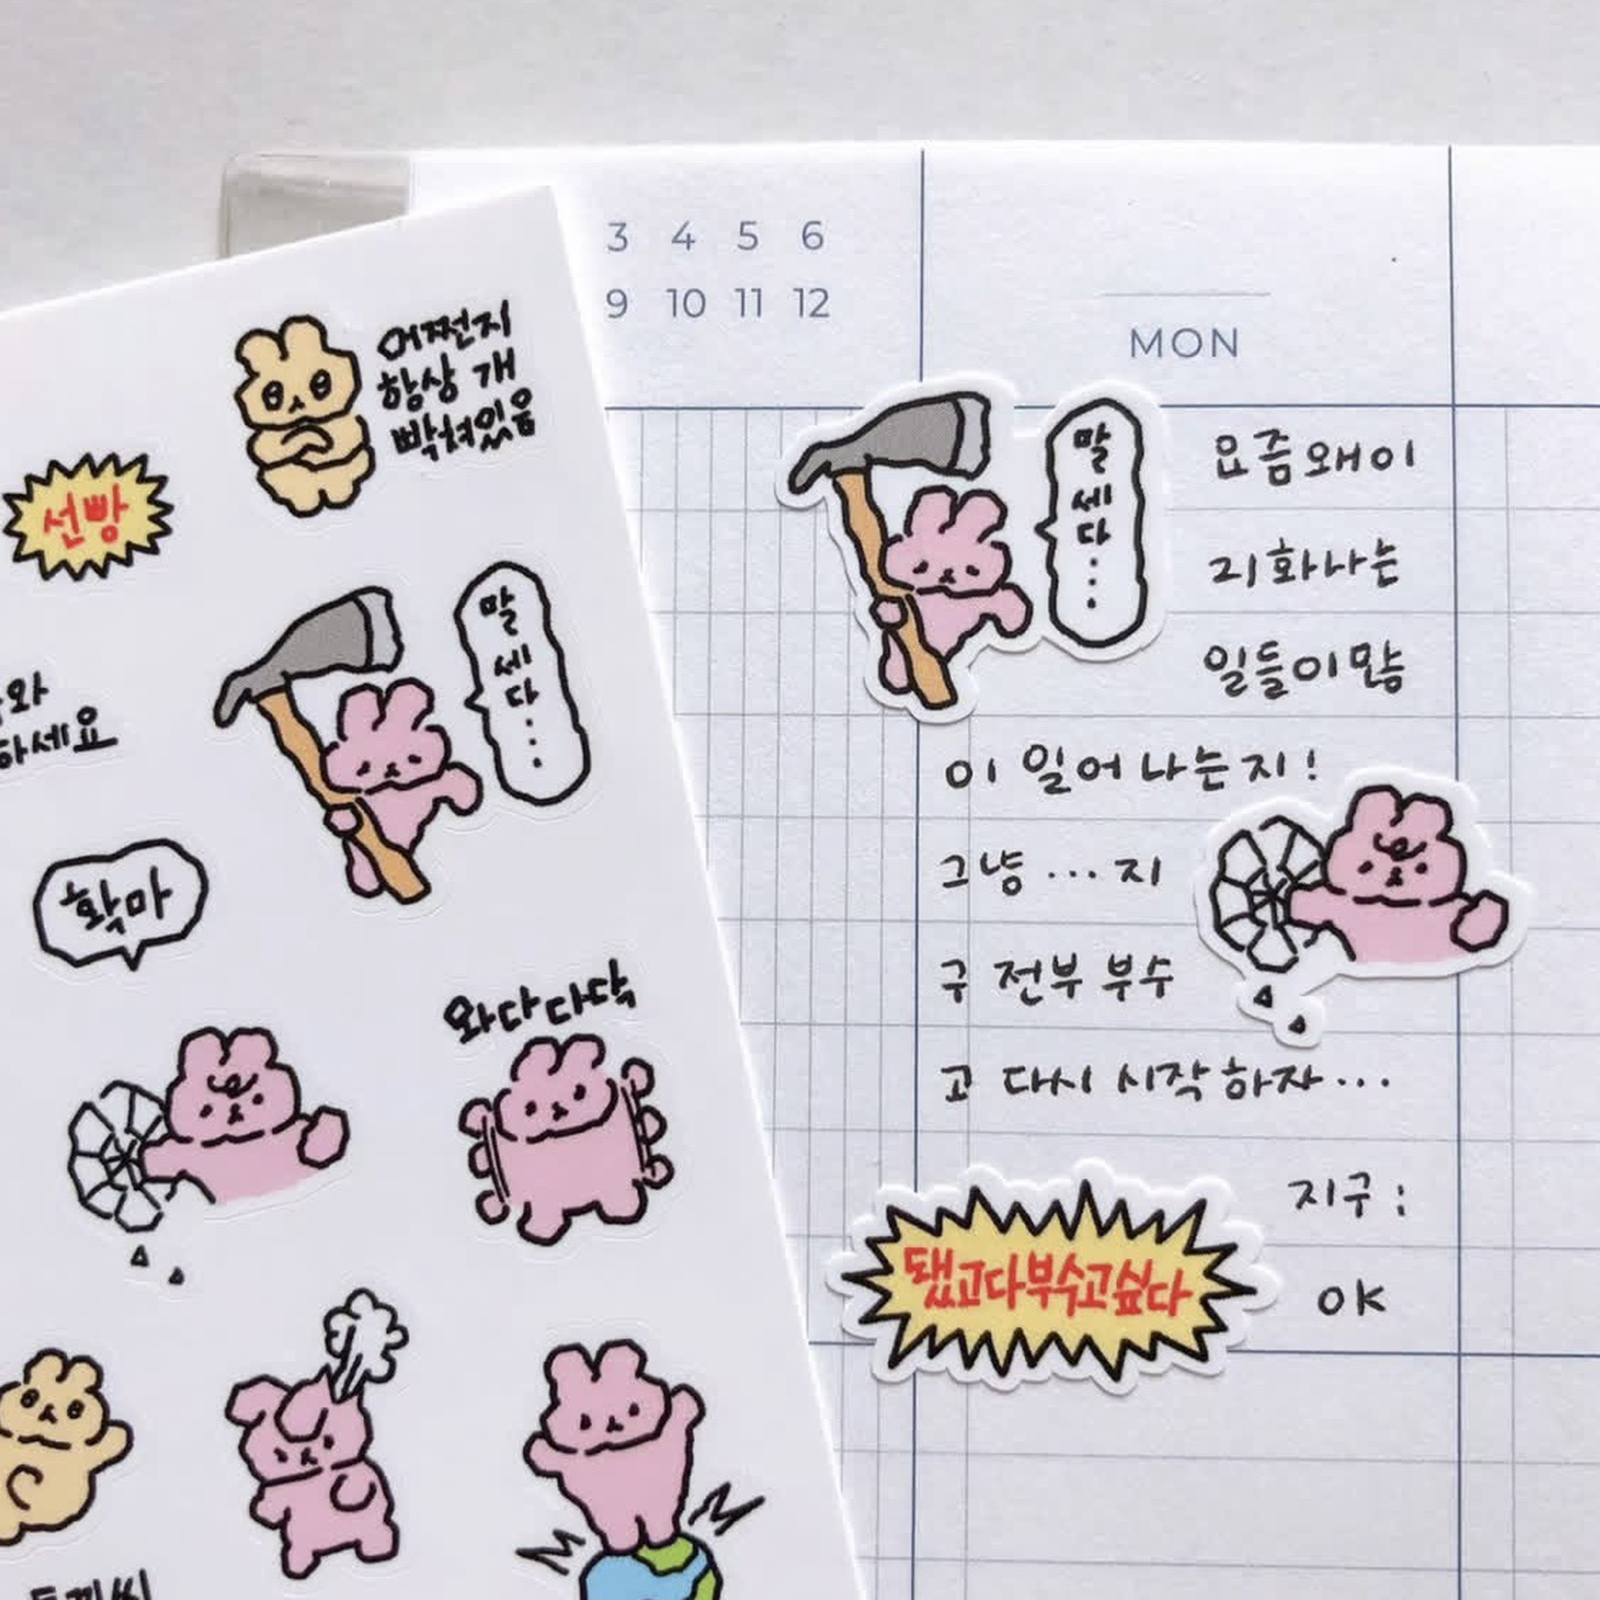 어쩐지
항상 개
빡쳐있음
선빵
말
세
다...
하세요
확마
와다다닥
3 4 5 6
9 10 11 12
MON
말
세
다...
요즘왜이
리화나는
일들이많
이 일어나는지!
그냥...지
구 전부 부수
고 다시 시작하자...
지구:
됐고다부수고싶다
OK